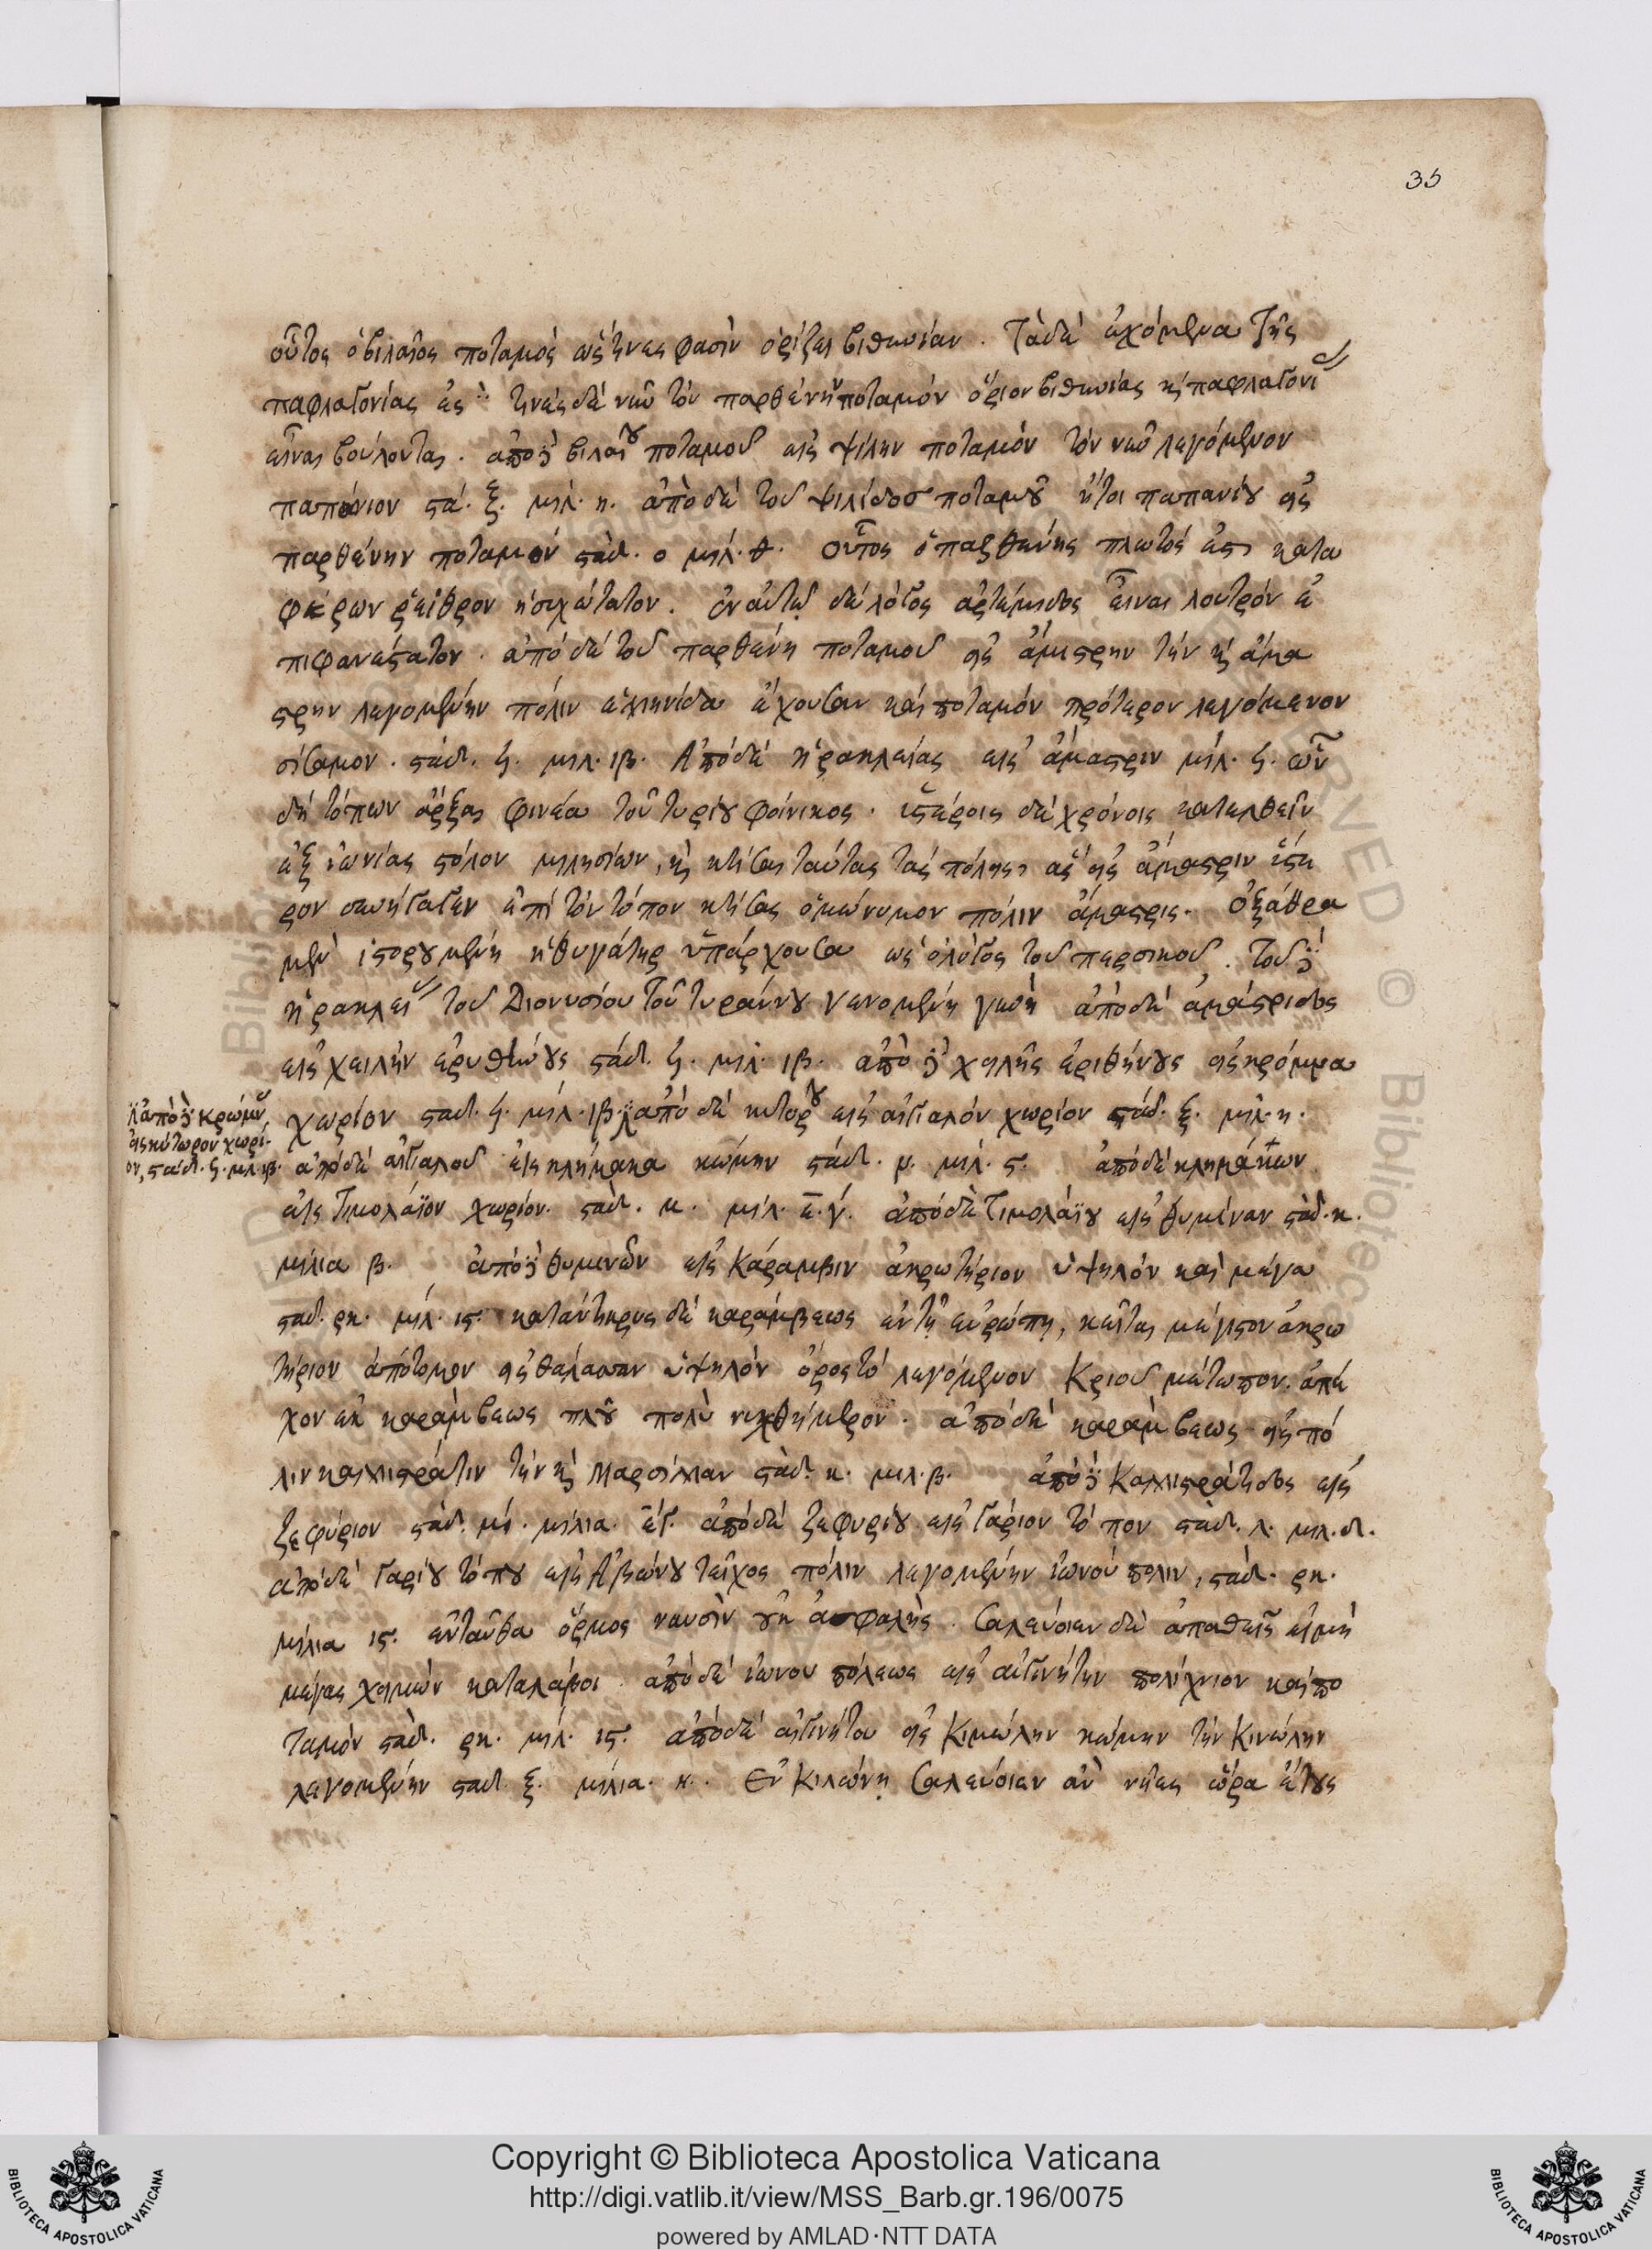 35
οὗτος ὁ βιλαῖος ποταμὸς ὥς τινες φασὶν ὁρίζει βιθυνίαν. Τὰ δὲ ἐχόμενα τῆς
παφλαγονίας ἐς τινὲς δὲ νῦν τὸν παρθένην ποταμόν ὅριον βιθυνίας καὶ παφλαγονίας
εἶναι βούλονται. ἀπὸ δὲ βιλαίου ποταμοῦ εἰς ψίλην ποταμὸν τὸν νῦν λεγόμενον
παπάνιον στά. ξ. μίλ. η. ἀπὸ δὲ τοῦ ψιλίδοσ ποταμοῦ ἤτοι παπανίου εἰς
παρθένην ποταμόν στάδ. ο μίλ. θ. οὗτος ὁ παρθένης πλωτός ἐστι κατα
φέρων ῥεῖθρον ἡσυχώτατον. ἐν αὐτῷ δὲ λόγος ἀρτέμιδος εἶναι λουτρόν ἐ
πιφανέστατον. ἀπὸ δὲ τοῦ παρθένη ποταμοῦ εἰς ἄμιστρην τὴν καὶ ἄμα
στρην λεγομένην πόλιν ἑλληνίδα ἔχουσαν καὶ ποταμόν πρότερον λεγόμενον
σίσαμον. στάδ. ϟ. μίλ. ιβ. Ἀπὸ δὲ ἡρακλείας εἰς ἄμαστριν μίλ. ϟ. ὧν
δὴ τόπων ἄρξαι φινέα τοῦ τυρίου φοίνικος. ὑστέροις δὲ χρόνοις κατελθεῖν
ἐξ ἰωνίας στόλον μιλησίων, καὶ κτίσαι ταύτας τάς πόλεις ἃς εἰς ἄμαστριν ὕστε
ρον συνήγαγεν ἐπὶ τὸν τόπον κτίσας ὁμώνυμον πόλιν ἄμαστρις. ὀξάθρα
μὲν ἱστορουμένη ἡ θυγάτηρ ὑπάρχουσα ὡς ὁ λόγος τοῦ περσικοῦ. τοῦ δὲ
ἡρακλείας τοῦ Διονυσίου τοῦ τυράννου γενομένη γυνὴ ἀπὸ δὲ ἀμάστριδος
εἰς χειλὴν ἐρυθίνους στάδ. ϟ. μίλ. ιβ. ἀπὸ δὲ χηλῆς ἐριθήνους εἰς κρόμμα
χωρίον σταδ. ϟ. μίλ. ιβ. ἀπὸ δὲ κυτόρου εἰς αἰγιαλόν χωρίον στάδ. ξ. μίλ. η.
ἀπὸ δὲ κρώμνης
εἰς κύτωρον χωρί-
ον, στάδ. ϟ. μιλ. ιβ.
ἀπὸ δὲ αἰγιαλοῦ εἰς κλήμακα κώμην στάδ. μ. μίλ. ς. ἀπὸ δὲ κλημάκων
εἰς τιμολάϊον χωρίον. στάδ. κ. μίλ. ε. γ. ἀπὸ δὲ τιμολάϊου εἰς θυμίναν στάδ. κ.
μίλια β. ἀπὸ δὲ θυμινῶν εἰς Κάραμβιν ἀκρωτήριον ὑψηλὸν καὶ μέγα
σταδ. ρκ. μίλ. ις. κατάντικρυς δὲ καράμβεως ἐν τῇ εὐρώπῃ, κεῖται μέγιστον ἀκρω
τήριον ἀπότομον εἰς θάλασσαν ὑψηλὸν ὄρος τὸ λεγόμενον Κριοῦ μέτωπον. ἀπέ
χον ἐκ καράμβεως πλοῦ πολὺ νυχθήμερον. ἀπὸ δὲ καράμβεως εἰς πό
λιν καλλιστράτιν τὴν καὶ Μαρσίλλαν στάδ. κ. μιλ. β. ἀπὸ δὲ Καλλιστράτιδος εἰς
ζεφύριον στάδ. μ. μίλια. ἀπὸ δὲ ζεφυρίου εἰς γάριον τόπον στάδ. λ. μιλ. δ.
ἀπὸ δὲ γαρίου τόπου εἰς Ἀβώνου τεῖχος πόλιν λεγομένην ἰωνούπολιν, στάδ. ρκ.
μίλια ις. ἐνταῦθα ὅρμος ναυσὶν οὐκ ἀσφαλὴς. Σαλεύοιεν δὲ ἀπαθεῖς εἰ μὴ
μέγας χειμὼν καταλάβοι. ἀπὸ δὲ ἰώνου πόλεως εἰς αἰγινήτην πολίχνιον καὶ πο
ταμὸν στάδ. ρκ. μίλ. ις. ἀπὸ δὲ αἰγινήτου εἰς Κιμώλην κώμην τὴν Κινώλην
λεγομένην σταδ. ξ. μίλια. η. Ἐν Κιλώνῃ Σαλεύοιεν ἂν νῆες ὥρᾳ ἔτους
Copyright © Biblioteca Apostolica Vaticana
http://digi.vatlib.it/view/MSS_Barb.gr.196/0075
powered by AMLAD·NTT DATA
BIBLIOTECA APOSTOLICA VATICANA
BIBLIOTECA APOSTOLICA VATICANA